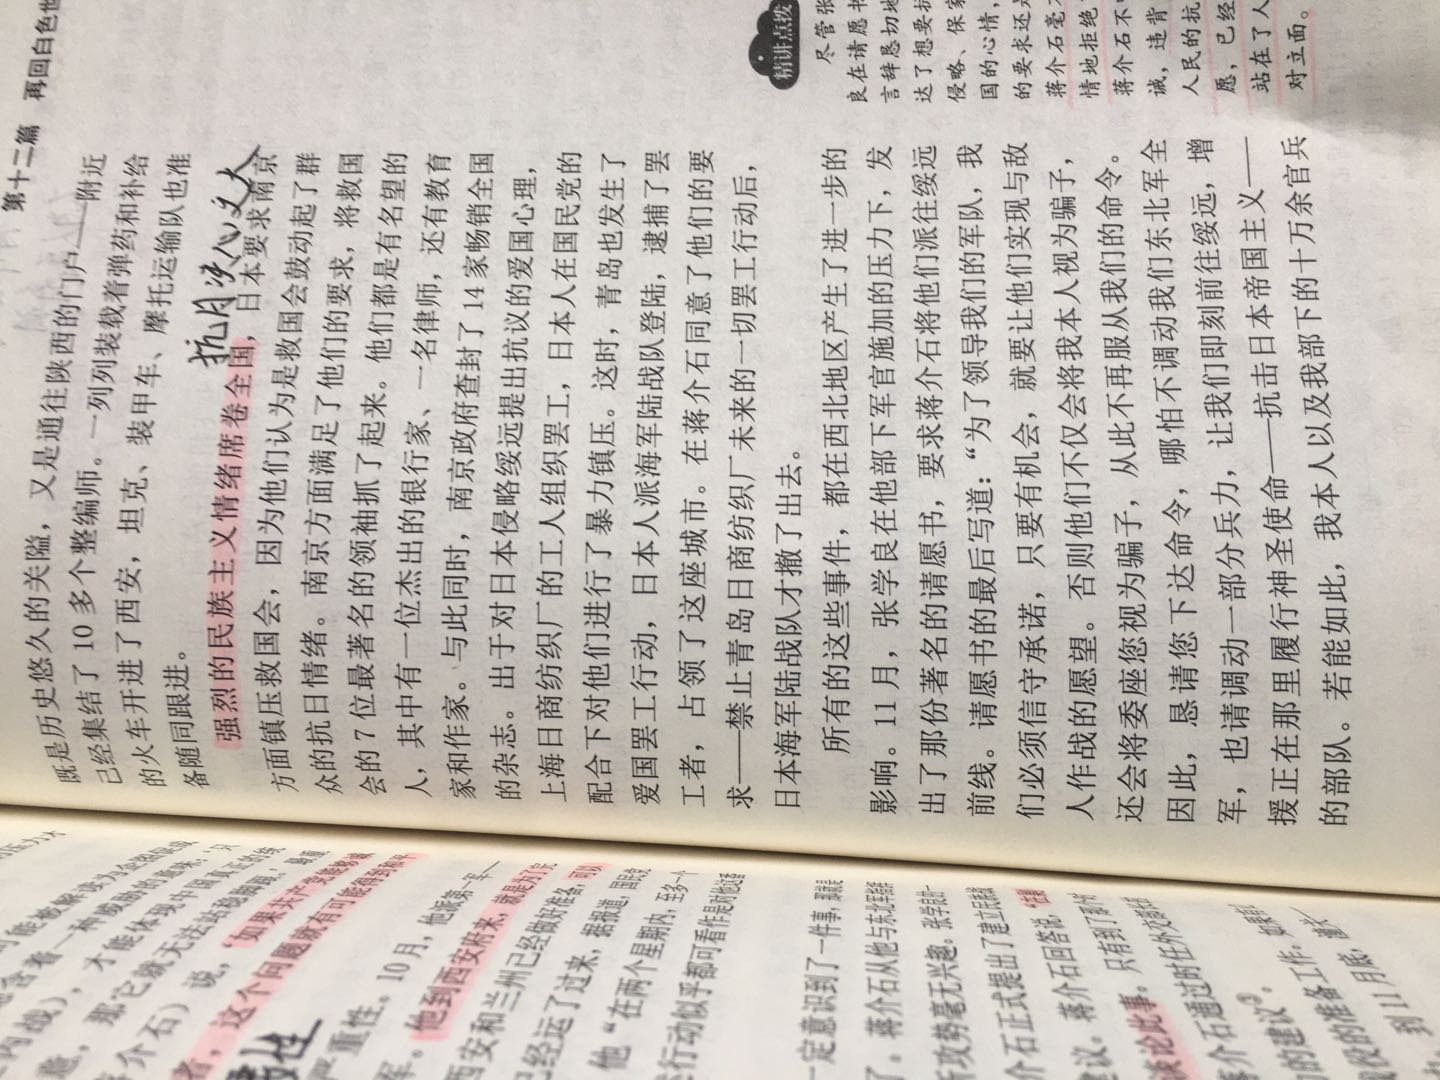 第十二篇 再回白色世
既是历史悠久的关隘，又是通往陕西的门户——附近
已经集结了 10 多个整编师。一列列装载着弹药和补给
的火车开进了西安，坦克、装甲车、摩托运输队也准
备随同跟进。
抗日
强烈的民族主义情绪席卷全国，日本要求南京
方面镇压救国会，因为他们认为是救国会鼓动起了群
众的抗日情绪。南京方面满足了他们的要求，将救国
会的 7 位最著名的领袖抓了起来。他们都是有名望的
人，其中有一位杰出的银行家、一名律师，还有教育
家和作家。与此同时，南京政府查封了 14 家畅销全国
的杂志。出于对日本侵略绥远提出抗议的爱国心理，
上海日商纺织厂的工人组织罢工，日本人在国民党的
配合下对他们进行了暴力镇压。这时，青岛也发生了
爱国罢工行动，日本人派海军陆战队登陆，逮捕了罢
工者，占领了这座城市。在蒋介石同意了他们的要
求——禁止青岛日商纺织厂未来的一切罢工行动后，
日本海军陆战队才撤了出去。
所有的这些事件，都在西北地区产生了进一步的
影响。11 月，张学良在他部下军官施加的压力下，发
出了那份著名的请愿书，要求蒋介石将他们派往绥远
前线。请愿书的最后写道：“为了领导我们的军队，我
们必须信守承诺，只要有机会，就要让他们实现与敌
人作战的愿望。否则他们不仅会将我本人视为骗子，
还会将委座您视为骗子，从此不再服从我们的命令。
因此，恳请您下达命令，哪怕不调动我们东北军全
军，也请调动一部分兵力，让我们即刻前往绥远，增
援正在那里履行神圣使命——抗击日本帝国主义——
的部队。若能如此，我本人以及我部下的十万余官兵
精讲点拨
尽管张
良在请愿书
言辞恳切地
达了想要抗
侵略、保家
国的心情，
的要求还是
蒋介石毫不
情地拒绝
蒋介石不
诚，违背
人民的抗
愿，已经
站在了人
对立面。
内战），才能体现中国真正的统
那它就无法站稳脚跟。
介石）说，“如果共产党能够诚
者，这个问题就有可能得到和平
严重性。10月，他派第一军
军。他到西安府来，就是为了完
西安和兰州已经做好准备，可以
已经运了过来，据报道，国民党
他“在两个星期内，至多一个
行动似乎都可看作是对他还备
一定意识到了一件事，那就是
了。蒋介石从他与东北军
攻势毫无兴趣。张学良的一
介石正式提出了建立反法
建议。蒋介石回答说，
谈论此事。只有到了
蒋介石通过时任外交部长
的建议③。
段的准备工作。
到11月底，